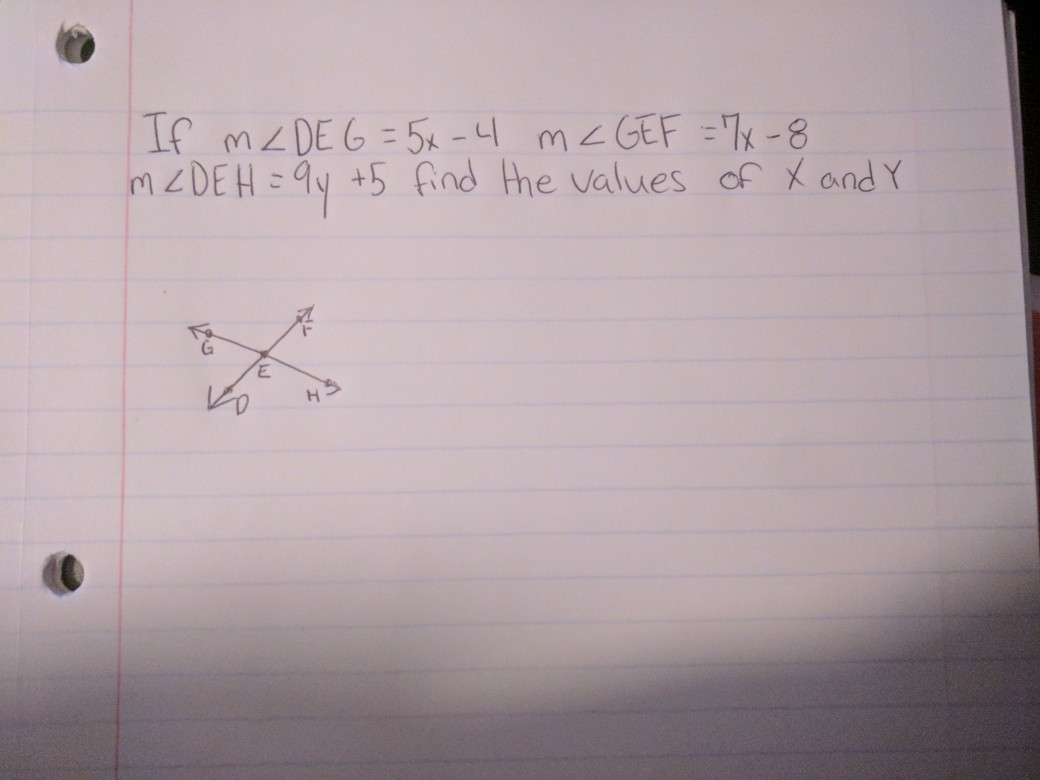 If m∠DEG = 5x - 4 m∠GEF = 7x - 8
m∠DEH = 9y + 5 find the values of X and Y
F
G
E
H
D